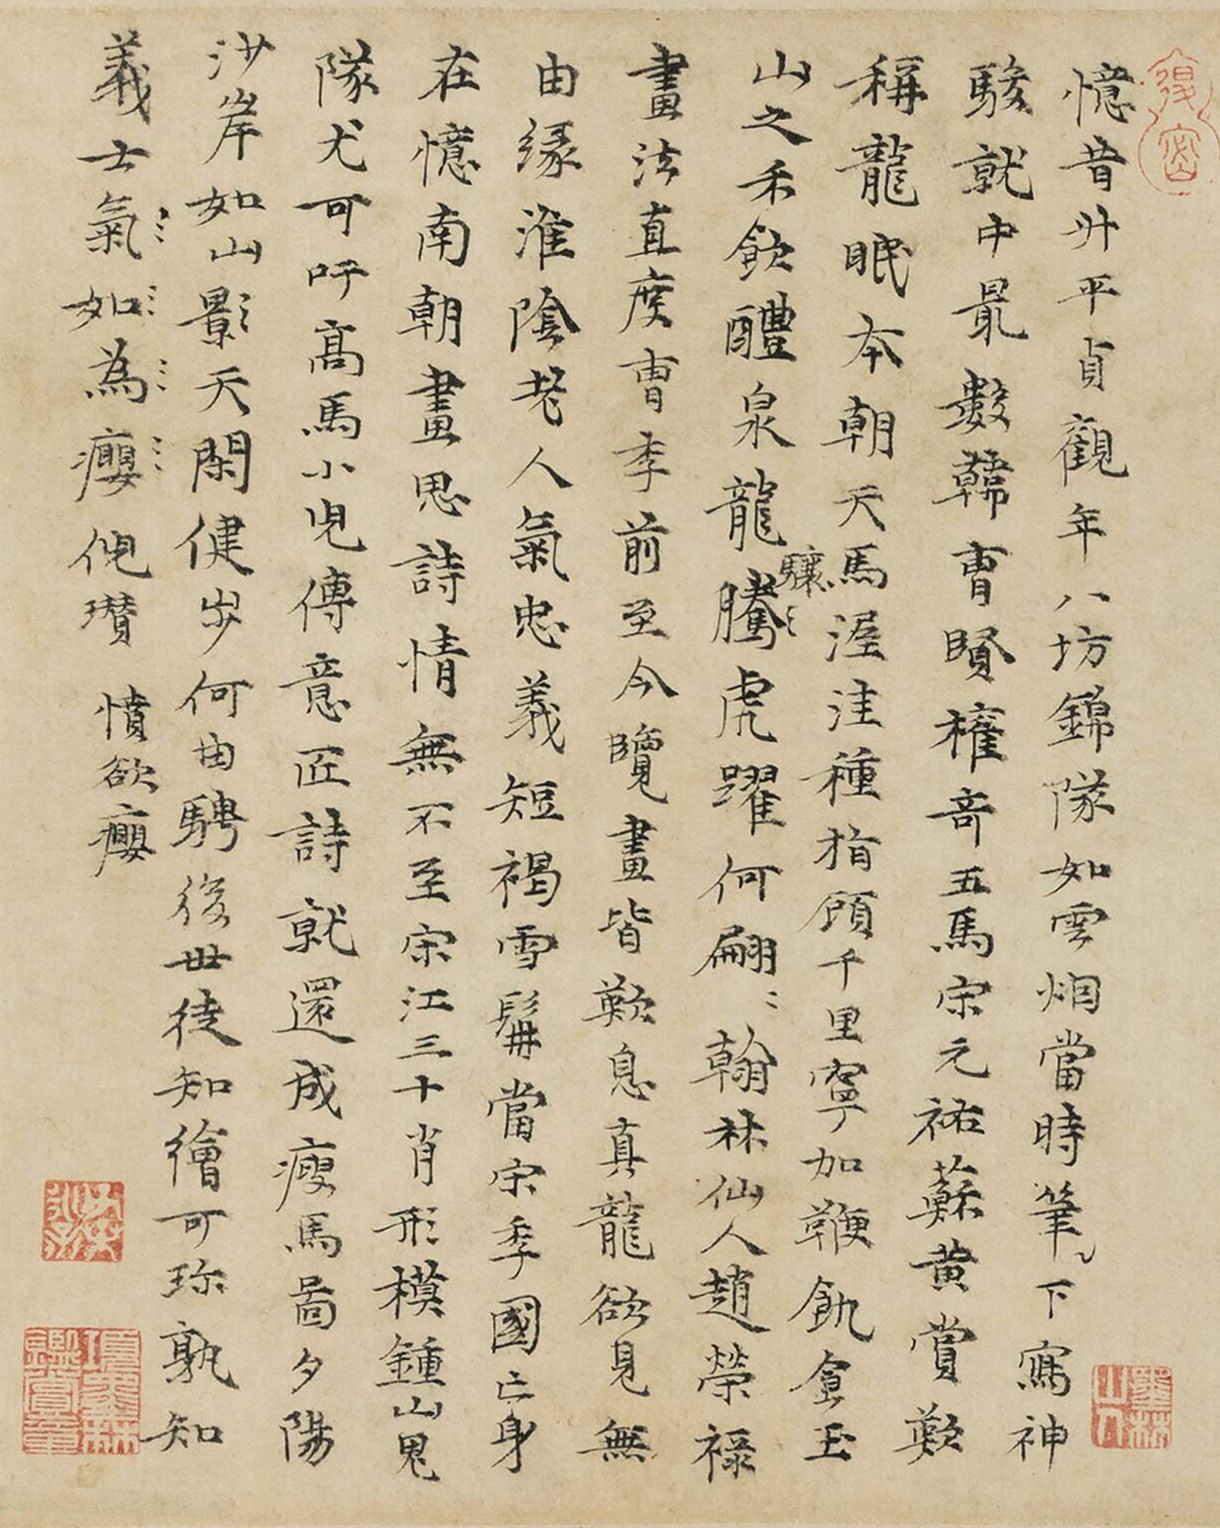 憶昔升平貞觀年八坊錦隊如雲烟當時筆下寫神
駿就中最數韓曹賢權奇五馬宋元祐蘇黄賞歎
稱龍眠本朝天馬渥洼種指顧千里寧加鞭飢食玉
山之禾飲醴泉龍騰驤虎躍何翩〻翰林仙人趙榮禄
畫法直度曹季前至今覽畫皆歎息真龍欲見無
由緣淮陰老人氣忠義短褐雪髯當宋季國亡身
在憶南朝畫思詩情無不至宋江三十肖形模鍾山鬼
隊尤可吁高馬小兒傳意匠詩就還成瘦馬圖夕陽
沙岸如山影天閑健步何由騁後世徒知繪可珍孰知
義士氣如為癭 憤欲癭
復密
墨林山人
項墨林鑑賞章